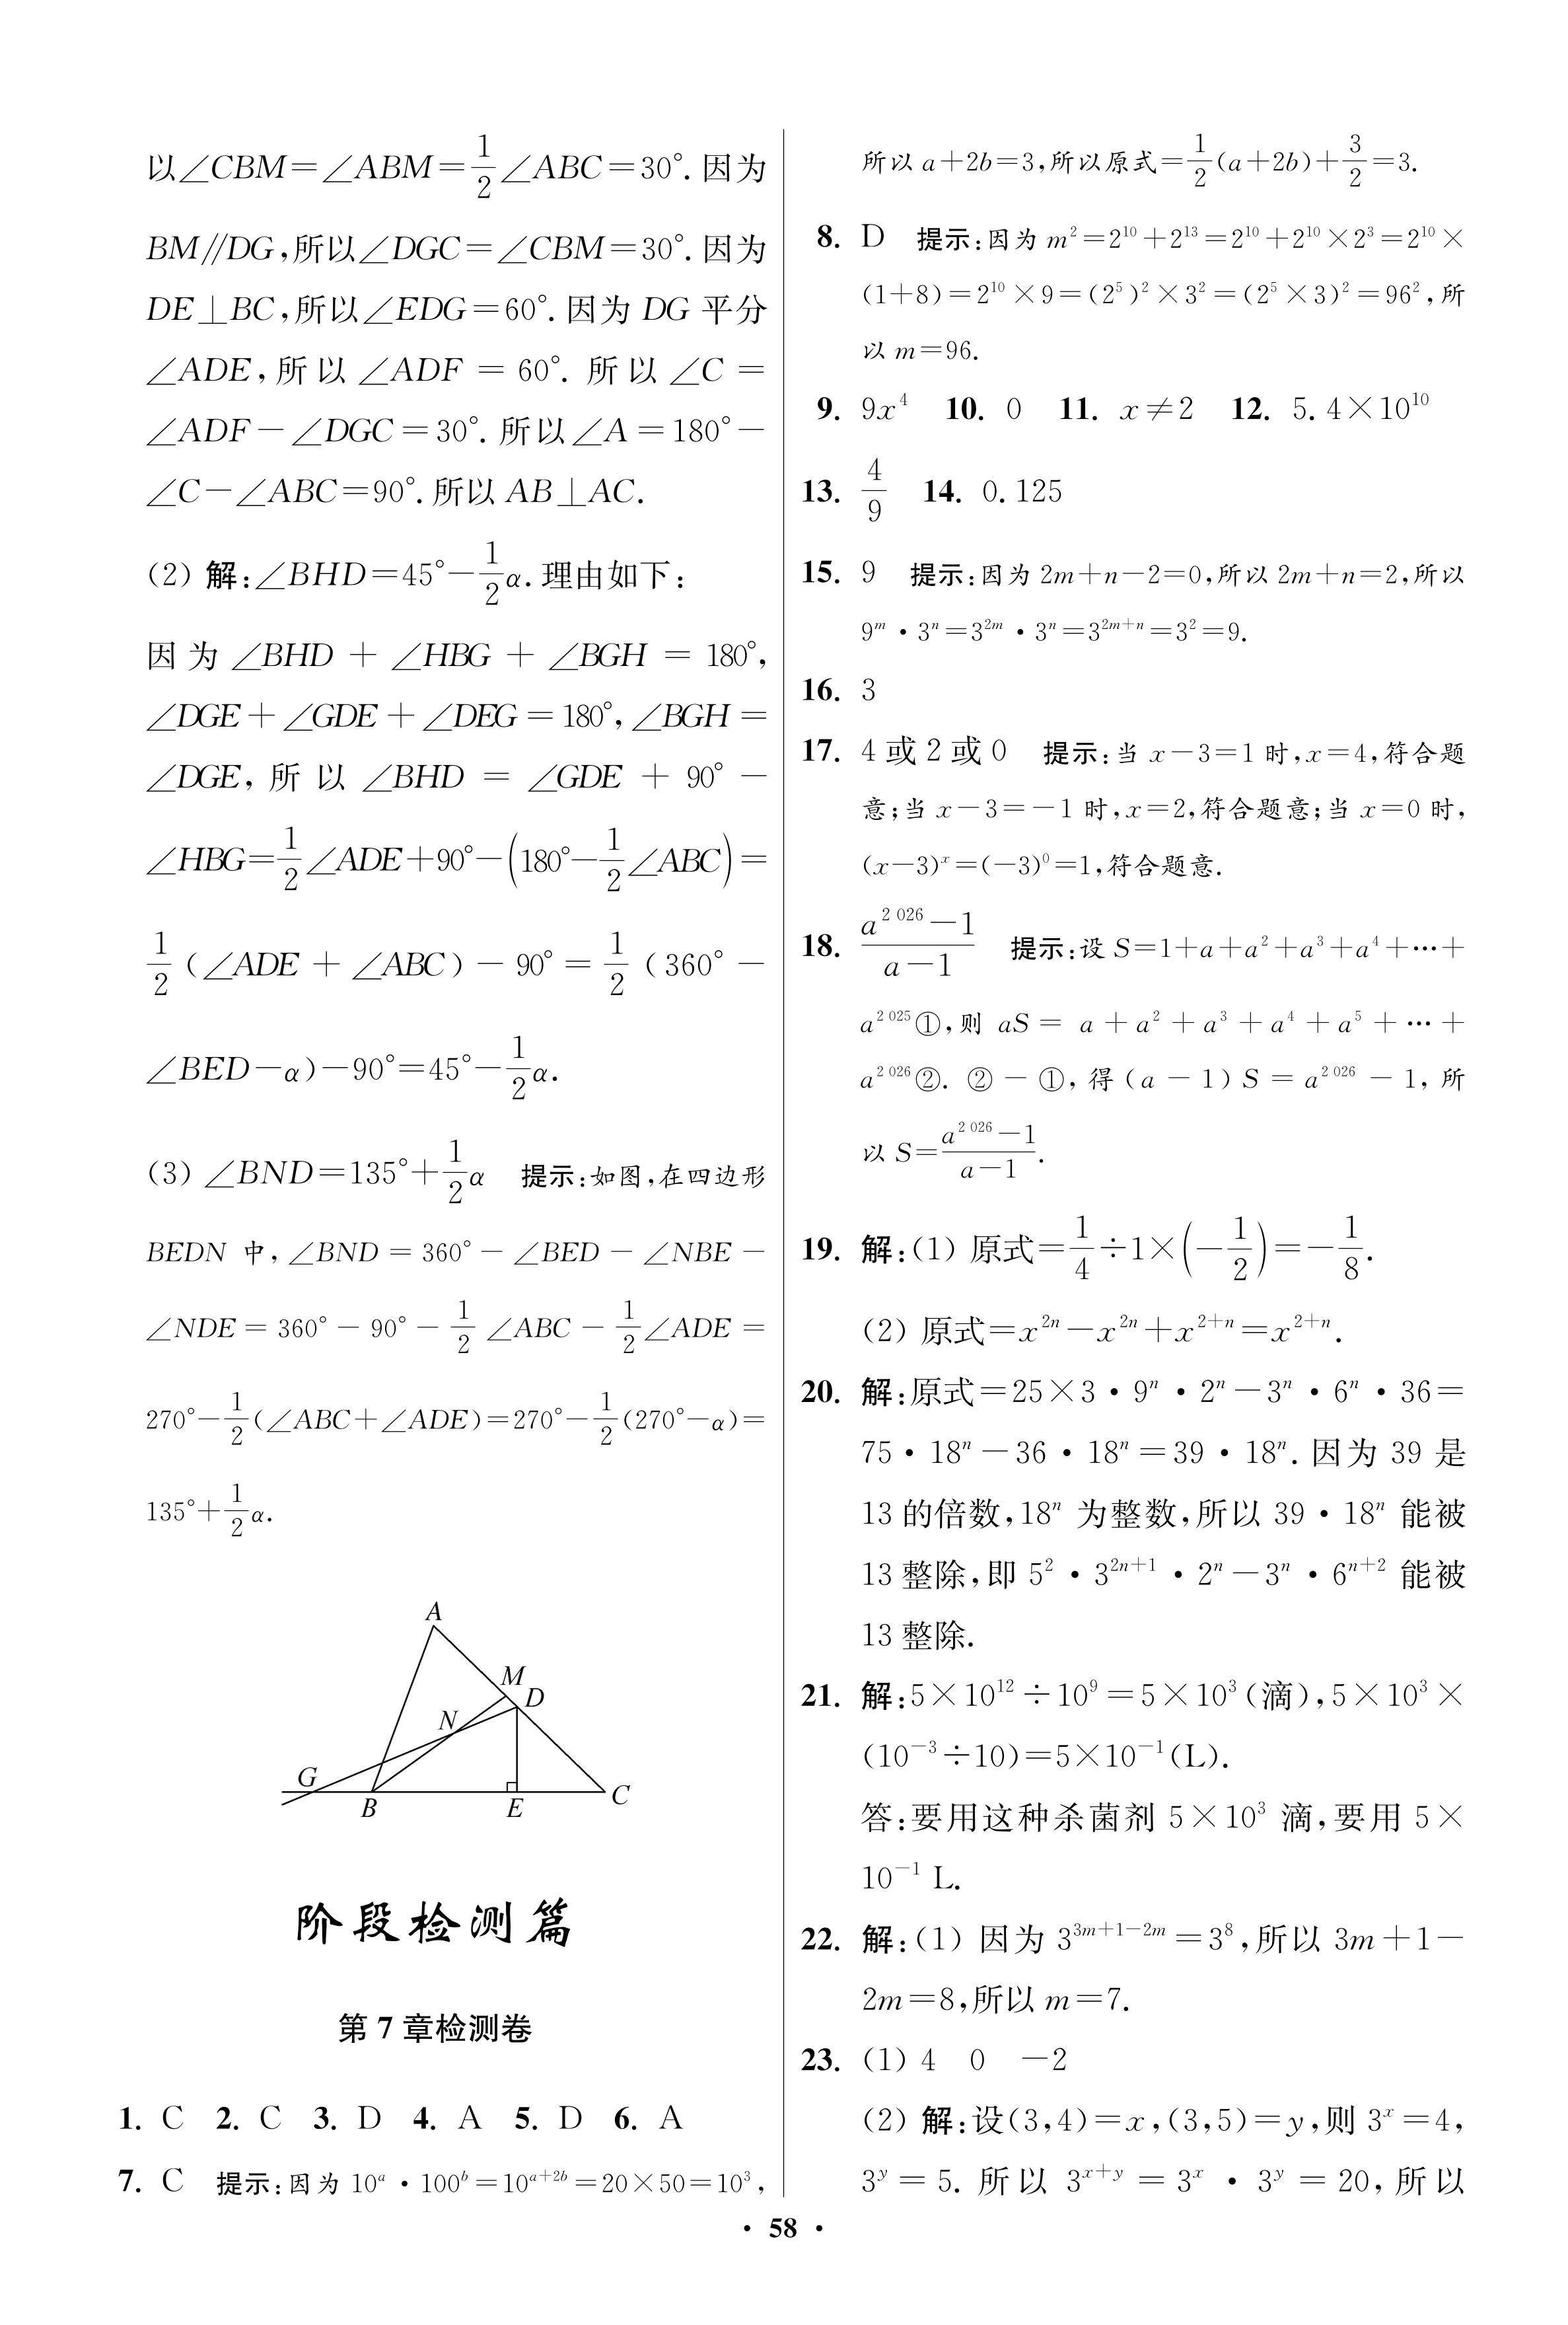 以∠CBM=∠ABM=1/2∠ABC=30°.因为
BM∥DG,所以∠DGC=∠CBM=30°.因为
DE⊥BC,所以∠EDG=60°.因为 DG 平分
∠ADE,所以∠ADF=60°.所以∠C=
∠ADF-∠DGC=30°.所以∠A=180°-
∠C-∠ABC=90°.所以 AB⊥AC.
(2) 解:∠BHD=45°-1/2α.理由如下:
因为∠BHD+∠HBG+∠BGH=180°,
∠DGE+∠GDE+∠DEG=180°,∠BGH=
∠DGE,所以∠BHD=∠GDE+90°-
∠HBG=1/2∠ADE+90°-(180°-1/2∠ABC)=
1/2(∠ADE+∠ABC)-90°=1/2(360°-
∠BED-α)-90°=45°-1/2α.
(3) ∠BND=135°+1/2α 提示:如图,在四边形
BEDN 中,∠BND=360°-∠BED-∠NBE-
∠NDE=360°-90°-1/2∠ABC-1/2∠ADE=
270°-1/2(∠ABC+∠ADE)=270°-1/2(270°-α)=
135°+1/2α.
A
M
D
N
G
B
E
C
阶段检测篇
第 7 章检测卷
1. C 2. C 3. D 4. A 5. D 6. A
7. C 提示:因为 10ᵃ·100ᵇ=10ᵃ⁺²ᵇ=20×50=10³,
所以 a+2b=3,所以原式=1/2(a+2b)+3/2=3.
8. D 提示:因为 m²=2¹⁰+2¹³=2¹⁰+2¹⁰×2³=2¹⁰×
(1+8)=2¹⁰×9=(2⁵)²×3²=(2⁵×3)²=96²,所
以 m=96.
9. 9x⁴ 10. 0 11. x≠2 12. 5.4×10¹⁰
13. 4/9 14. 0.125
15. 9 提示:因为 2m+n-2=0,所以 2m+n=2,所以
9ᵐ·3ⁿ=3²ᵐ·3ⁿ=3²ᵐ⁺ⁿ=3²=9.
16. 3
17. 4 或 2 或 0 提示:当 x-3=1 时,x=4,符合题
意;当 x-3=-1 时,x=2,符合题意;当 x=0 时,
(x-3)ˣ=(-3)⁰=1,符合题意.
18. (a²⁰²⁶-1)/(a-1) 提示:设 S=1+a+a²+a³+a⁴+…+
a²⁰²⁵①,则 aS=a+a²+a³+a⁴+a⁵+…+
a²⁰²⁶②. ②-①,得(a-1)S=a²⁰²⁶-1,所
以 S=(a²⁰²⁶-1)/(a-1).
19. 解:(1) 原式=1/4÷1×(-1/2)=-1/8.
(2) 原式=x²ⁿ-x²ⁿ+x²⁺ⁿ=x²⁺ⁿ.
20. 解:原式=25×3·9ⁿ·2ⁿ-3ⁿ·6ⁿ·36=
75·18ⁿ-36·18ⁿ=39·18ⁿ.因为 39 是
13 的倍数,18ⁿ 为整数,所以 39·18ⁿ 能被
13 整除,即 5²·3²ⁿ⁺¹·2ⁿ-3ⁿ·6ⁿ⁺² 能被
13 整除.
21. 解:5×10¹²÷10⁹=5×10³(滴),5×10³×
(10⁻³÷10)=5×10⁻¹(L).
答:要用这种杀菌剂 5×10³ 滴,要用 5×
10⁻¹ L.
22. 解:(1) 因为 3³ᵐ⁺¹⁻²ᵐ=3⁸,所以 3m+1-
2m=8,所以 m=7.
23. (1) 4 0 -2
(2) 解:设(3,4)=x,(3,5)=y,则 3ˣ=4,
3ʸ=5. 所以 3ˣ⁺ʸ=3ˣ·3ʸ=20,所以
· 58 ·